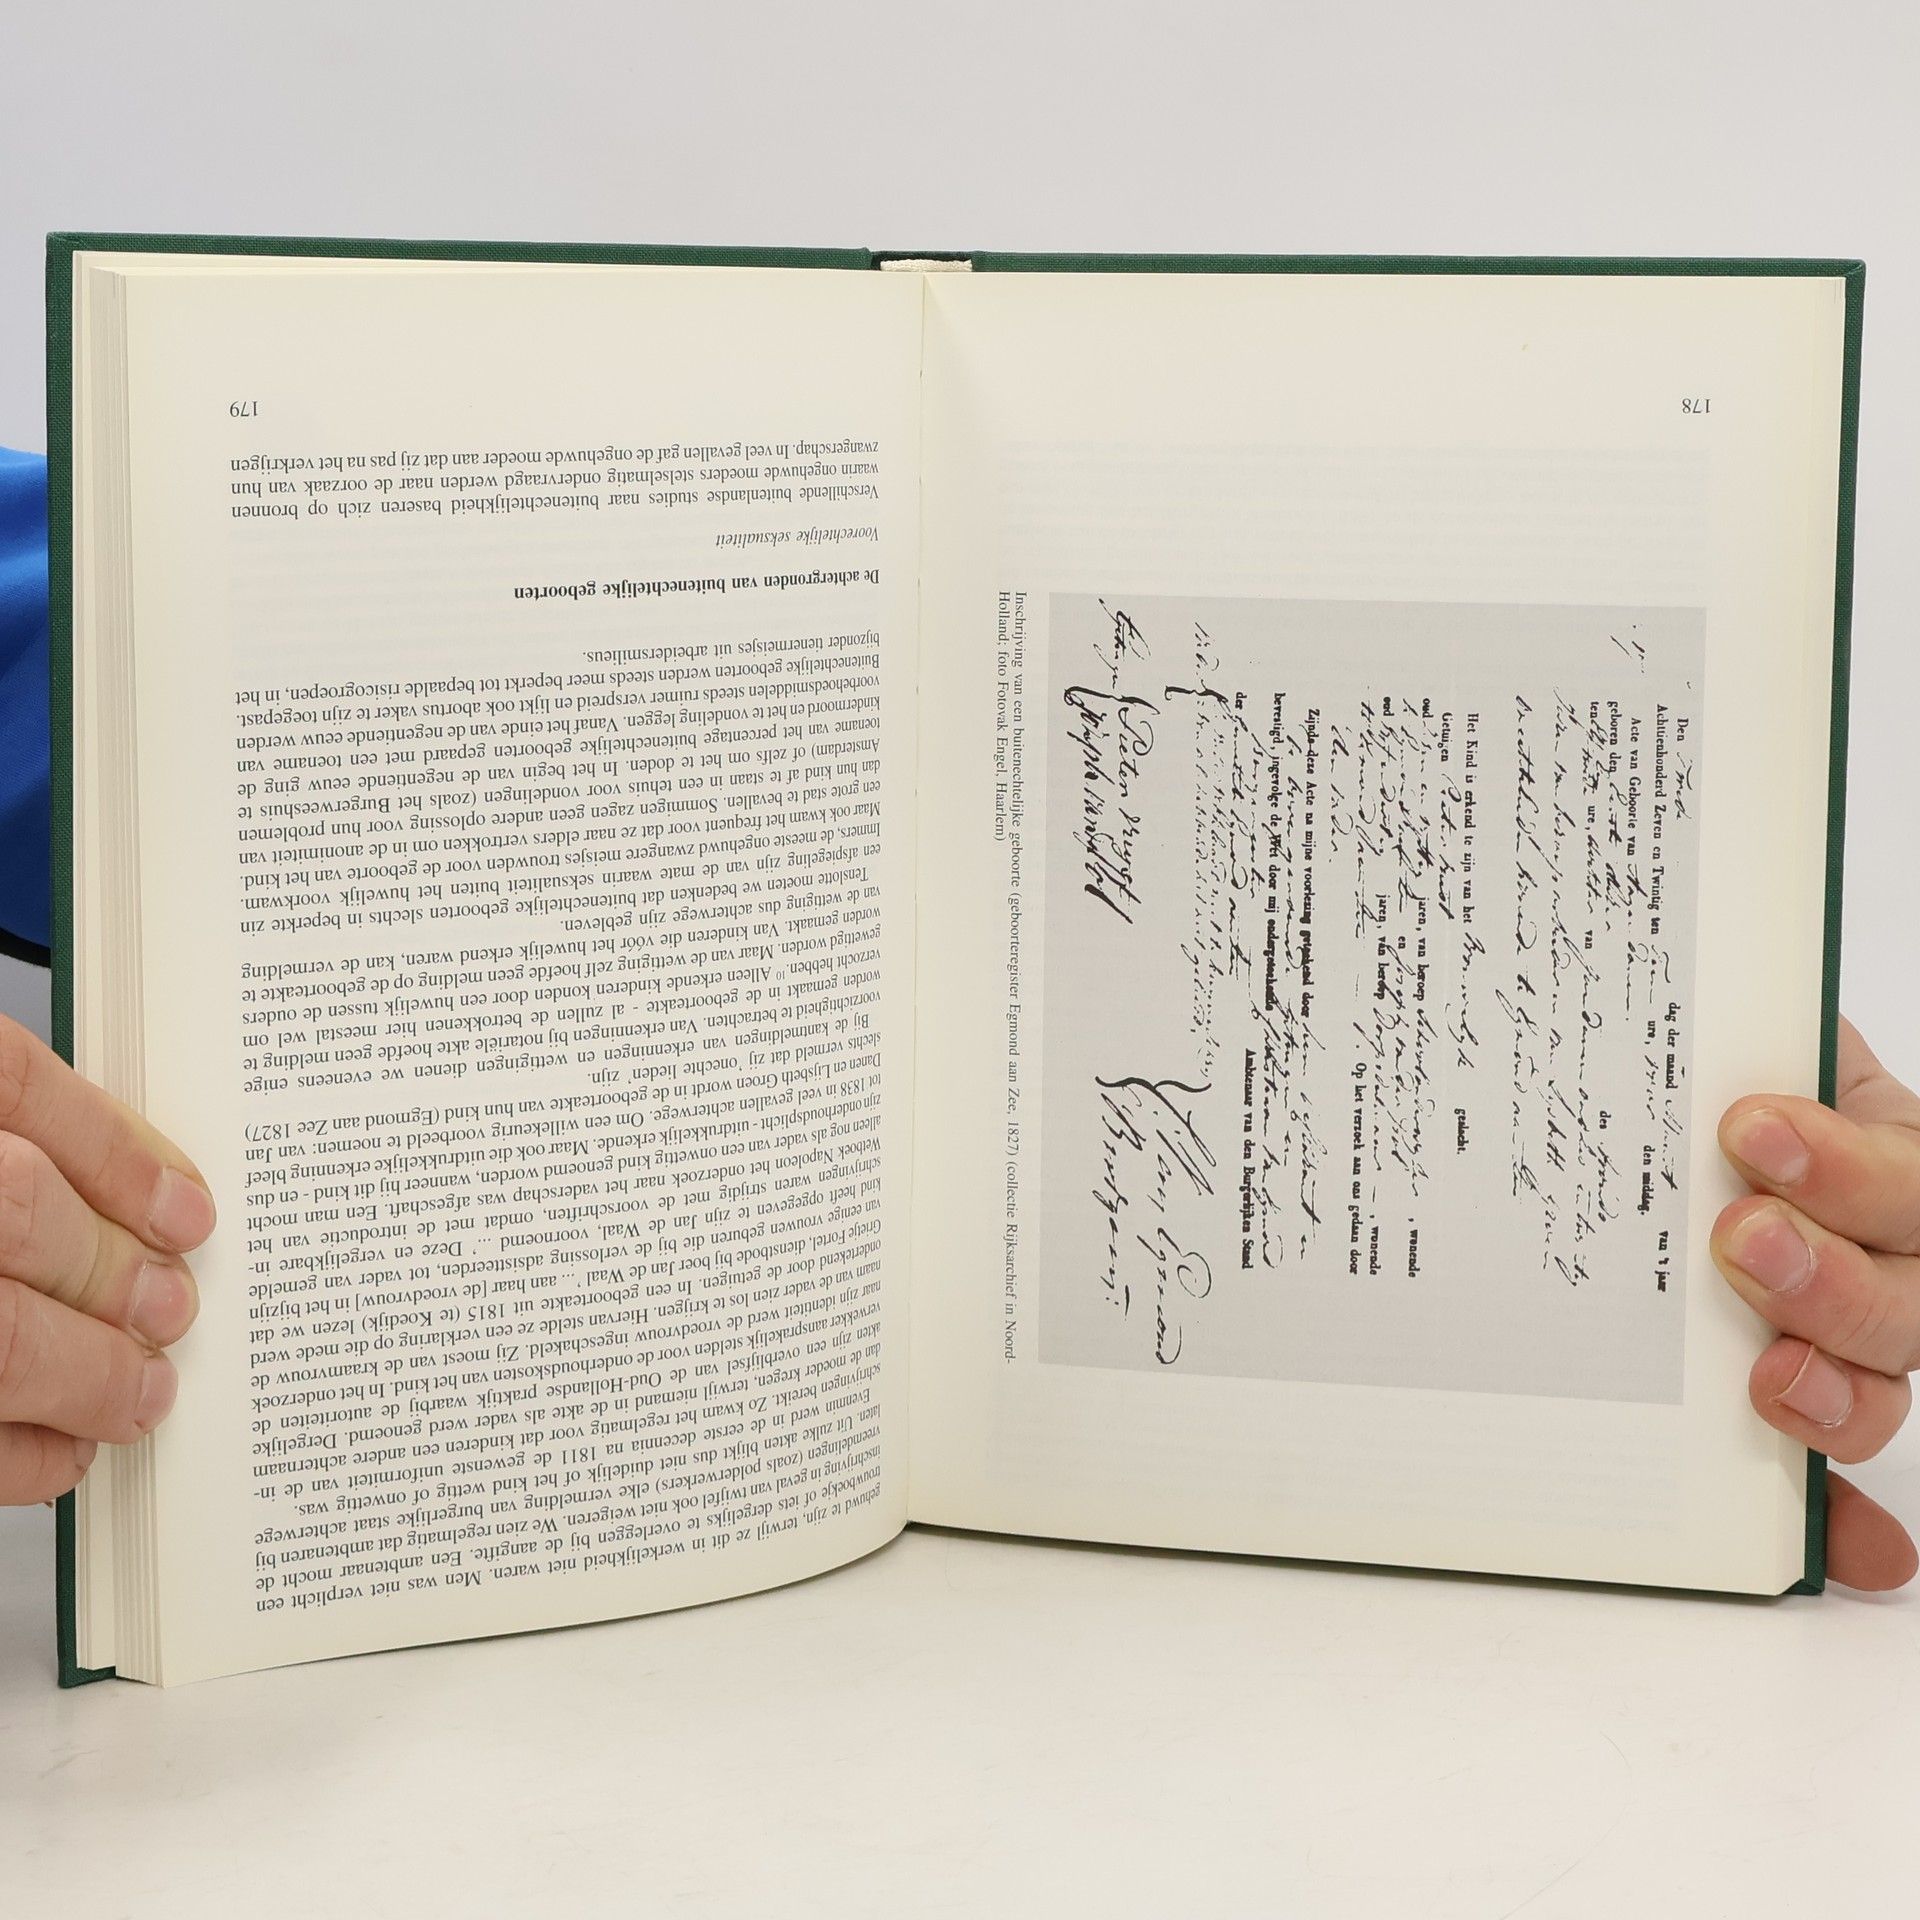 178
Den dag der maand van 't jaar
Achttienhonderd Zeven en Twintig ten ure, den middag.
Acte van Geboorte van
geboren den des
ten ure, van
Het Kind is erkend te zijn van het geslacht.
Getuigen Pieter
oud jaren, van beroep , wonende
en
oud jaren, van beroep , wonende
. Op het verzoek aan ons gedaan door
Zijnde deze Acte na mijne voorlezing geteekend door
bevestigd, ingevolge de Wet door mij ondergeteekende
der Ambtenaar van den Burgerlijken Stand
Pieter
Inschrijving van een buitenechtelijke geboorte (geboorteregister Egmond aan Zee, 1827) (collectie Rijksarchief in Noord-
Holland; foto Fotovak Engel, Haarlem)
gehuwd te zijn, terwijl ze dit in werkelijkheid niet waren. Men was niet verplicht een
trouwboekje of iets dergelijks te overleggen bij de aangifte. Een ambtenaar mocht de
inschrijving in geval van twijfel ook niet weigeren. We zien regelmatig dat ambtenaren bij
vreemdelingen (zoals polderwerkers) elke vermelding van burgerlijke staat achterwege
laten. Uit zulke akten blijkt dus niet duidelijk of het kind wettig of onwettig was.
Evenmin werd in de eerste decennia na 1811 de gewenste uniformiteit van de in-
schrijvingen bereikt. Zo kwam het regelmatig voor dat kinderen een andere achternaam
dan de moeder kregen, terwijl niemand in de akte als vader werd genoemd. Dergelijke
akten zijn een overblijfsel van de Oud-Hollandse praktijk waarbij de autoriteiten de
verwekker aansprakelijk stelden voor de onderhoudskosten van het kind. In het onderzoek
naar zijn identiteit werd de vroedvrouw ingeschakeld. Zij moest van de kraamvrouw de
naam van de vader zien los te krijgen. Hiervan stelde ze een verklaring op die mede werd
ondertekend door de getuigen. In een geboorteakte uit 1815 (te Koedijk) lezen we dat
Grietje Fortel, dienstbode bij boer Jan de Waal '... aan haar [de vroedvrouw] in het bijzijn
van eenige vrouwen geburen die bij de verlossing adsisteerden, tot vader van gemelde
kind heeft opgegeven te zijn Jan de Waal, voornoemd ...' Deze en vergelijkbare in-
schrijvingen waren strijdig met de voorschriften, omdat met de introductie van het
Wetboek Napoleon het onderzoek naar het vaderschap was afgeschaft. Een man mocht
alleen nog als vader van een onwettig kind genoemd worden, wanneer hij dit kind - en dus
zijn onderhoudsplicht - uitdrukkelijk erkende. Maar ook die uitdrukkelijke erkenning bleef
tot 1838 in veel gevallen achterwege. Om een willekeurig voorbeeld te noemen: van Jan
Danen en Lijsbeth Groen wordt in de geboorteakte van hun kind (Egmond aan Zee 1827)
slechts vermeld dat zij 'onechte lieden' zijn.
Bij de kantmeldingen van erkenningen en wettigingen dienen we eveneens enige
voorzichtigheid te betrachten. Van erkenningen bij notariële akte hoefde geen melding te
worden gemaakt in de geboorteakte - al zullen de betrokkenen hier meestal wel om
verzocht hebben.10 Alleen erkende kinderen konden door een huwelijk tussen de ouders
gewettigd worden. Maar van de wettiging zelf hoefde geen melding op de geboorteakte te
worden gemaakt. Van kinderen die vóór het huwelijk erkend waren, kan de vermelding
van de wettiging dus achterwege zijn gebleven.
Tenslotte moeten we bedenken dat buitenechtelijke geboorten slechts in beperkte zin
een afspiegeling zijn van de mate waarin seksualiteit buiten het huwelijk voorkwam.
Immers, de meeste ongehuwd zwangere meisjes trouwden voor de geboorte van het kind.
Maar ook kwam het frequent voor dat ze naar elders vertrokken om in de anonimiteit van
een grote stad te bevallen. Sommigen zagen geen andere oplossing voor hun problemen
dan hun kind af te staan in een tehuis voor vondelingen (zoals het Burgerweeshuis te
Amsterdam) of zelfs om het te doden. In het begin van de negentiende eeuw ging de
toename van het percentage buitenechtelijke geboorten gepaard met een toename van
kindermoord en het te vondeling leggen. Vanaf het einde van de negentiende eeuw werden
voorbehoedsmiddelen steeds ruimer verspreid en lijkt ook abortus vaker te zijn toegepast.
Buitenechtelijke geboorten werden steeds meer beperkt tot bepaalde risicogroepen, in het
bijzonder tienermeisjes uit arbeidersmilieus.
De achtergronden van buitenechtelijke geboorten
Voorechtelijke seksualiteit
Verschillende buitenlandse studies naar buitenechtelijkheid baseren zich op bronnen
waarin ongehuwde moeders stelselmatig ondervraagd werden naar de oorzaak van hun
zwangerschap. In veel gevallen gaf de ongehuwde moeder aan dat zij pas na het verkrijgen
179